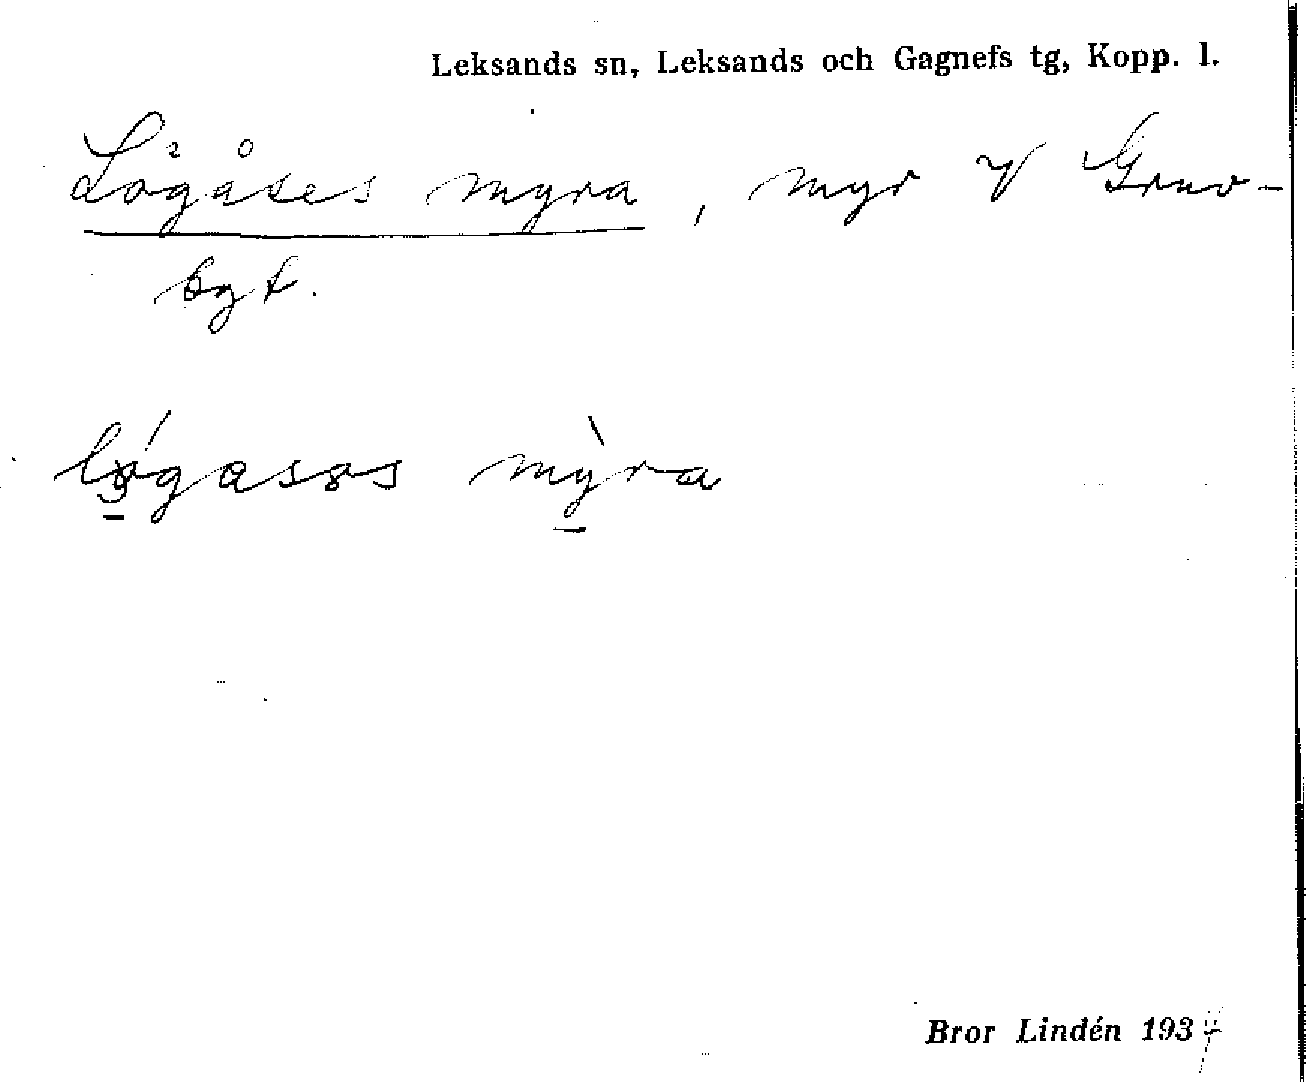 Leksands sn, Leksands och Gagnefs tg, Kopp. l.
Lögåses myra, myr V Gruv-
bgt.
lógasəs mỳra
Bror Lindén 1934